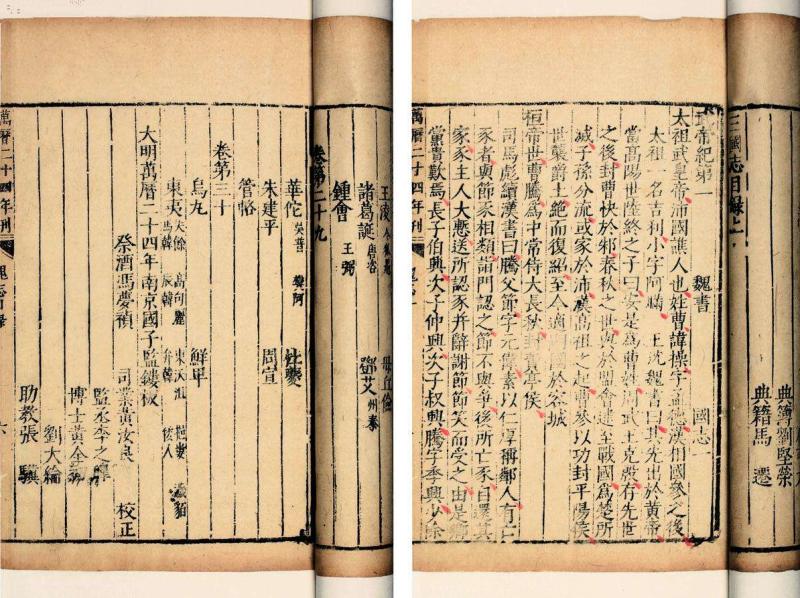 王淩 毌丘儉
諸葛誕 唐咨 鄧艾 州泰
鍾會 王弼
卷第二十九
華佗 吳普 樊阿 杜夔
朱建平 周宣
管輅
卷第三十
烏丸 鮮卑
東夷 夫餘 高句麗 東沃沮 挹婁 濊貊 馬韓 辰韓 弁韓 倭人
大明萬曆二十四年南京國子監鏤板
祭酒馮夢禎 司業黃汝良 校正
監丞李之
博士黃全初
劉大綸
助教張 驥
萬曆二十四年刊 魏志目錄 六
典簿劉堅榮
典籍馬 遷
三國志目錄上
武帝紀第一 魏書 國志一
太祖武皇帝沛國譙人也姓曹諱操字孟德漢相國參之後
太祖一名吉利小字阿瞞 王沈魏書曰其先出於黃帝
當高陽世陸終之子曰安是為曹姓周武王克殷存先世
之後封曹俠於邾春秋之世與於盟會逮至戰國為楚所
滅子孫分流或家於沛漢高祖之起曹參以功封平陽侯
世襲爵土絕而復紹至今適嗣國於容城
桓帝世曹騰為中常侍大長秋封費亭侯
司馬彪續漢書曰騰父節字元偉素以仁厚稱鄰人有亡
豕者與節豕相類詣門認之節不與爭後所亡豕自還其
家豕主人大慙送所認豕并辭謝節節笑而受之由是鄉
黨貴歎焉長子伯興次子仲興次子叔興騰字季興少除
萬曆二十四年刊